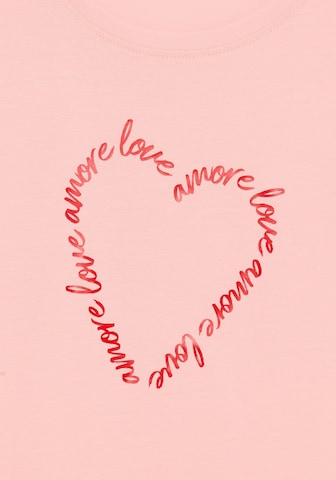 amore love amore love
amore love amore love